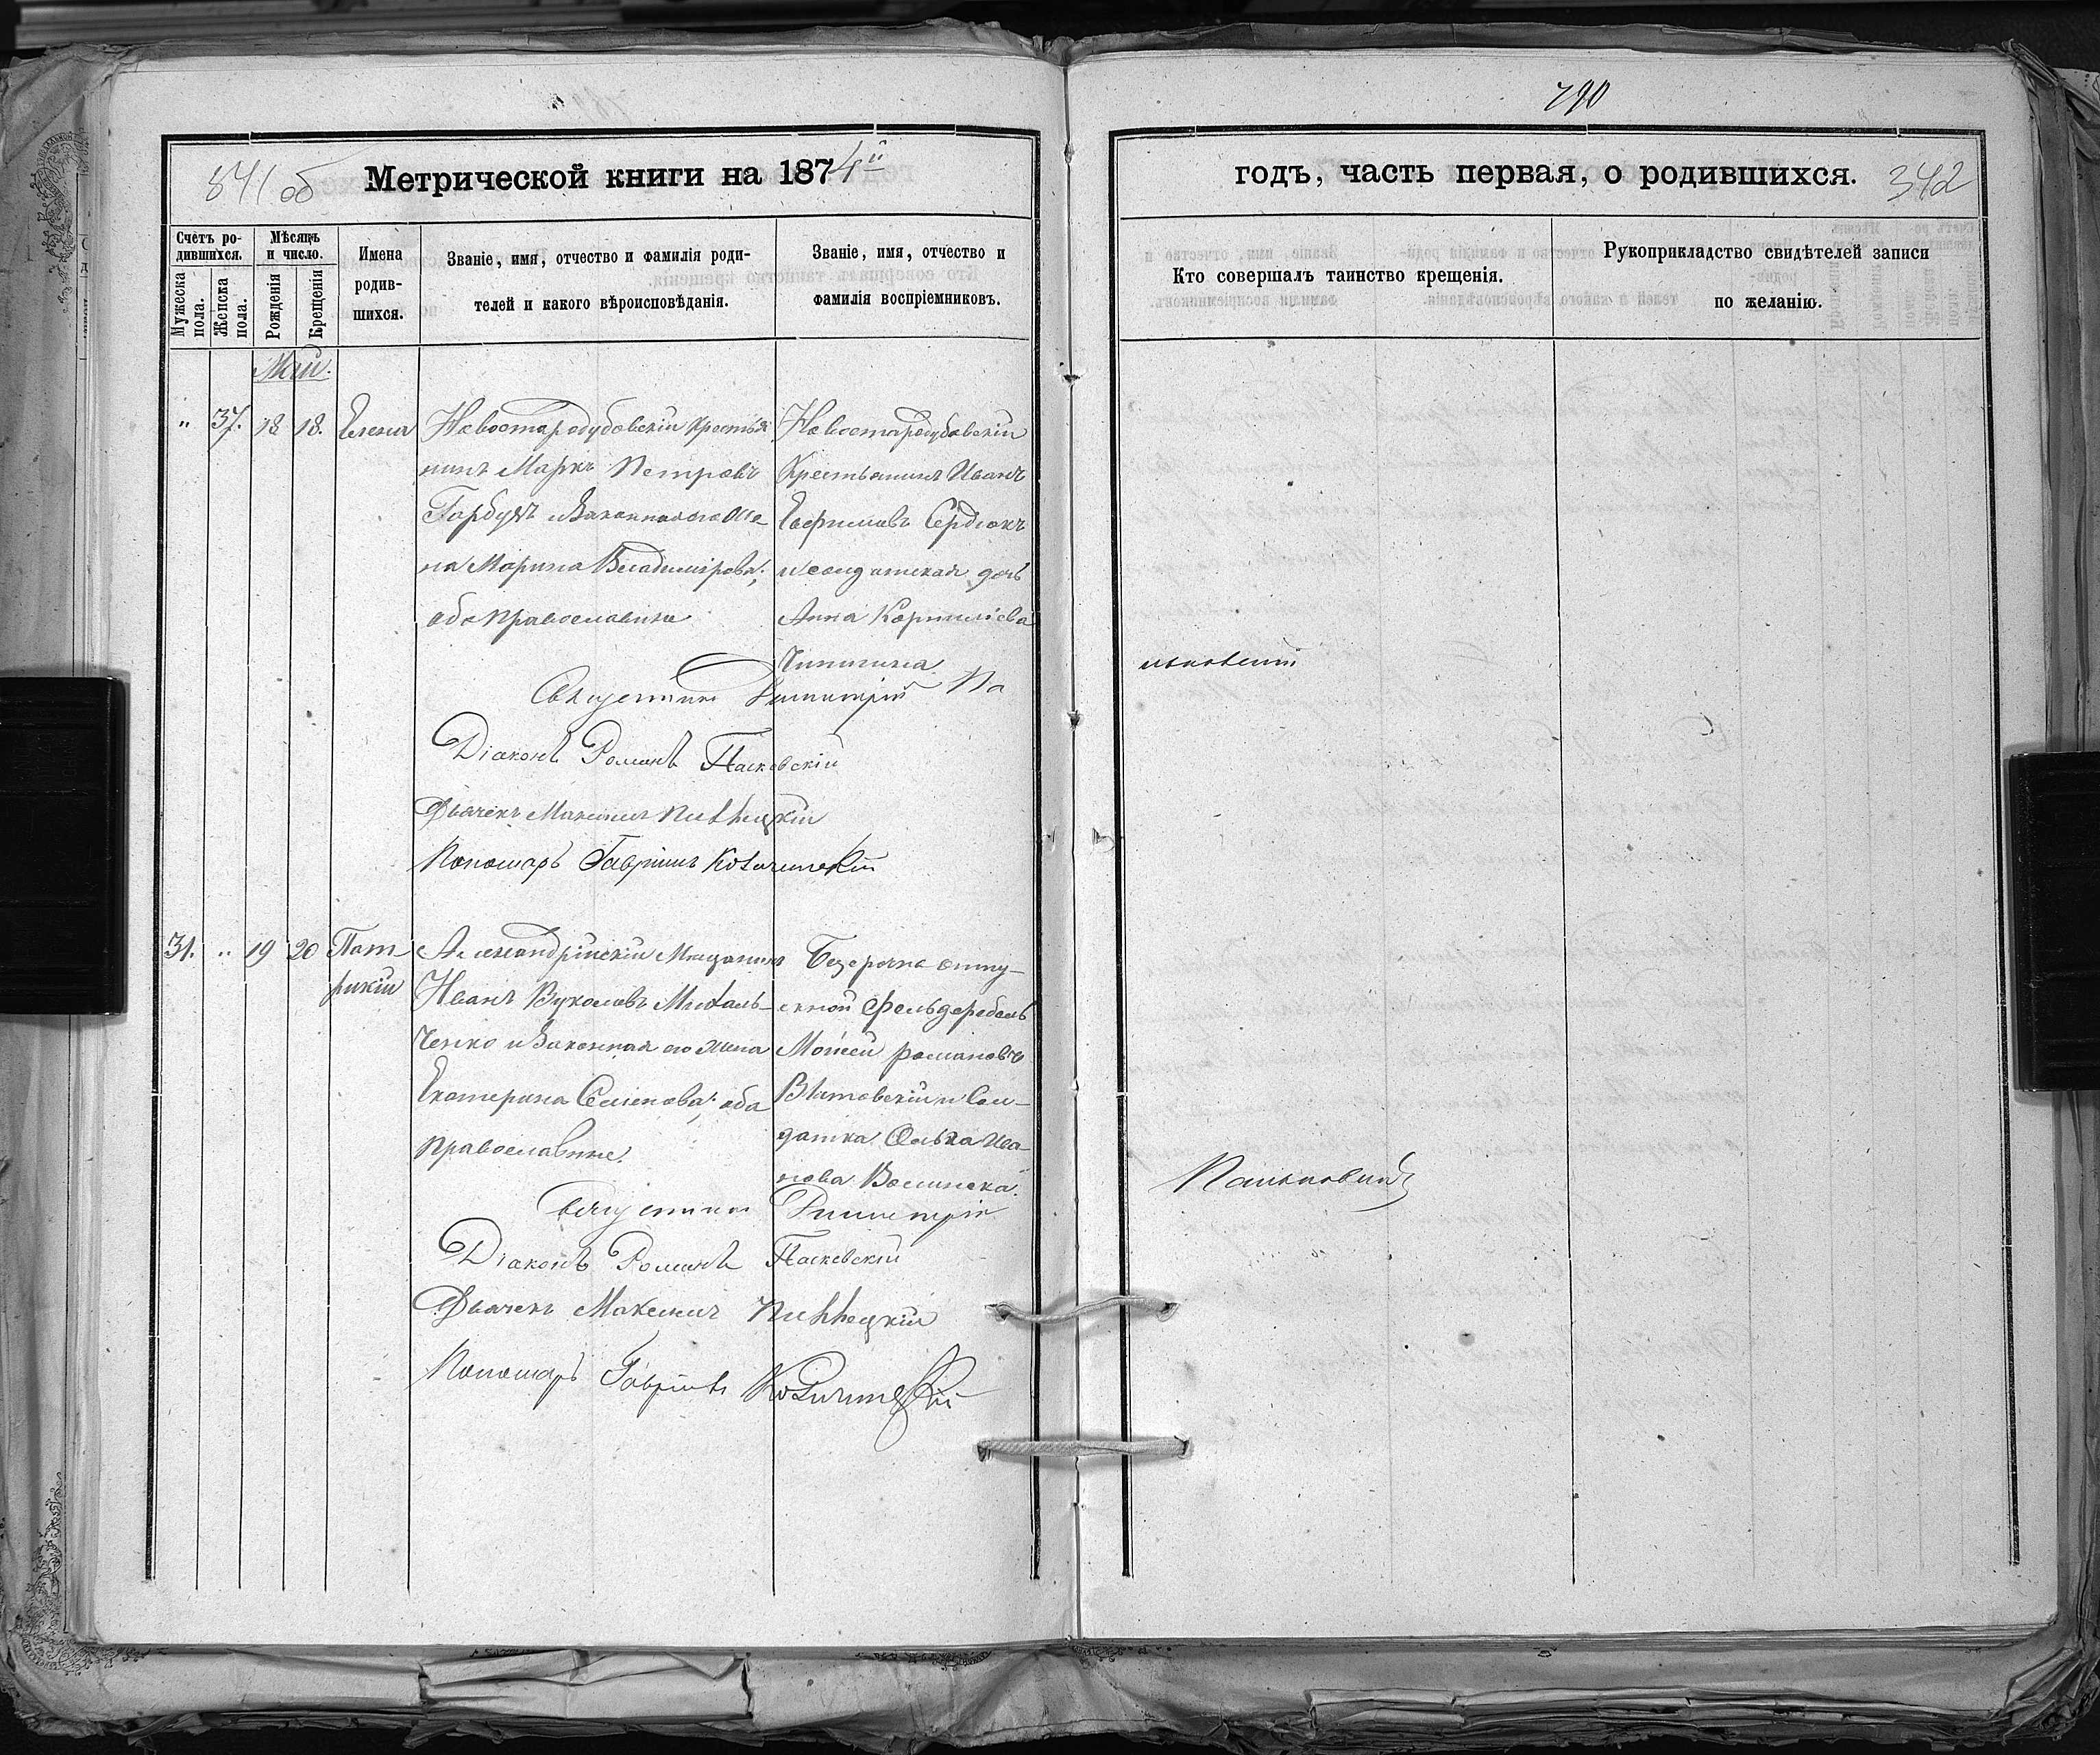 790
341 об
Метрической книги на 1874й
годъ, часть первая, о родившихся.
342
Счетъ ро-
дившихся.
Мѣсяцъ
и число.
Мужеска
пола.
Женска
пола.
Рожденія
Крещенія
Имена
родив-
шихся.
Званіе, имя, отчество и фамилія роди-
телей и какого вѣроисповѣданія.
Званіе, имя, отчество и
фамилія воспріемниковъ.
Кто совершалъ таинство крещенія.
Рукоприкладство свидѣтелей записи
по желанію.
Май.
" 37. 18 18. Елена
Новостародубовскій крестья
нинъ Маркъ Петровъ
Горбузъ и Законная его Же-
на Марина Владимірова;
оба православные
Новостародубовскій
Крестьянинъ Иванъ
Ефимовъ Сердюкъ
и солдатская дочь
Анна Корнилієва
Священникъ Димитрій Па
льковскій
Діаконъ Романъ Пасковскій
Дьячекъ Максимъ
Пономарь Гавріилъ
31. " 19 20 Пат
рикій
Александрійскій Мещанинъ
Иванъ Вуколовъ Михаль-
ченко и Законная его Жена
Екатерина Семенова; оба
православные.
Безсрочно отпу-
скной фельдфебель
Моисей романовъ
Витовскій и Сол-
датка Ольга Ива-
нова
Священникъ Димитрій
Діаконъ Романъ Пасковскій
Дьячекъ Максимъ
Пономарь Гавріилъ